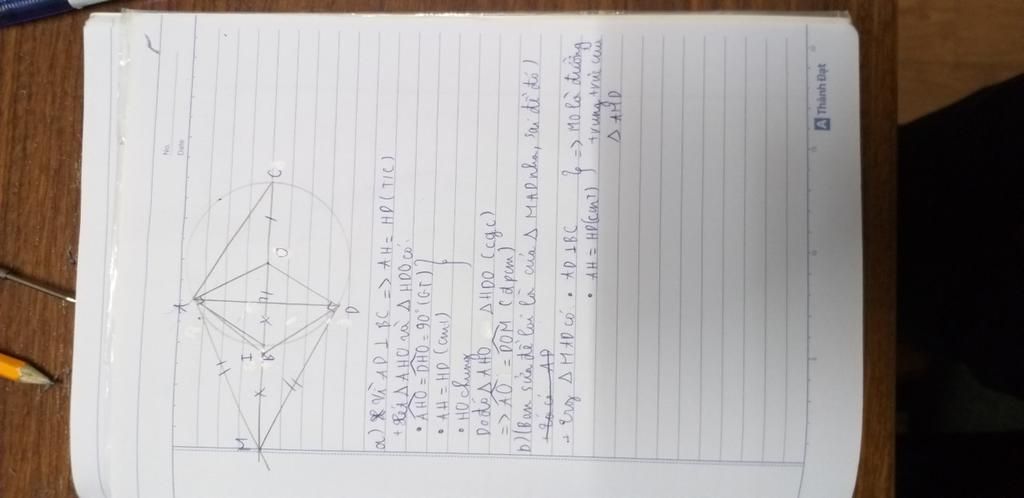 No.
Date
A
I
B
M
O
C
D
a) Vì AD ⊥ BC => AH = HD (T/C)
+ Xét △ AHO và △ HDO có:
• AHO = DHO = 90° (GT)
• AH = HD (cmt)
• HO chung
Do đó △ AHO △ HDO (cgc)
=> AO = DOM (đpcm)
b) (Bạn sửa đề lại là của △ MAD nha, sai đề đó)
+ Trong △ MAD có: • AD ⊥ BC
• AH = HD (cmt)
=> MO là đường
trung trực của
△ AMD
A Thành Đạt